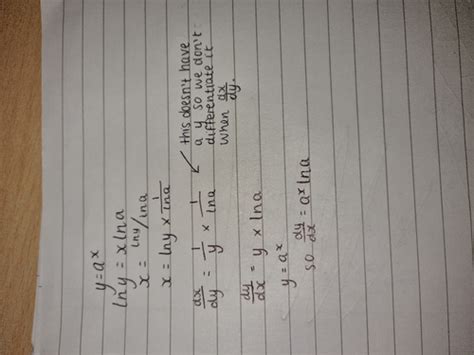 y = aˣ
ln y = x ln a
x = ln y / ln a
x = ln y × 1/ln a
dx/dy = 1/y × 1/ln a
this doesn't have
a y so we don't
differentiate it
when dx/dy.
dy/dx = y × ln a
y = aˣ
so dy/dx = aˣ ln a